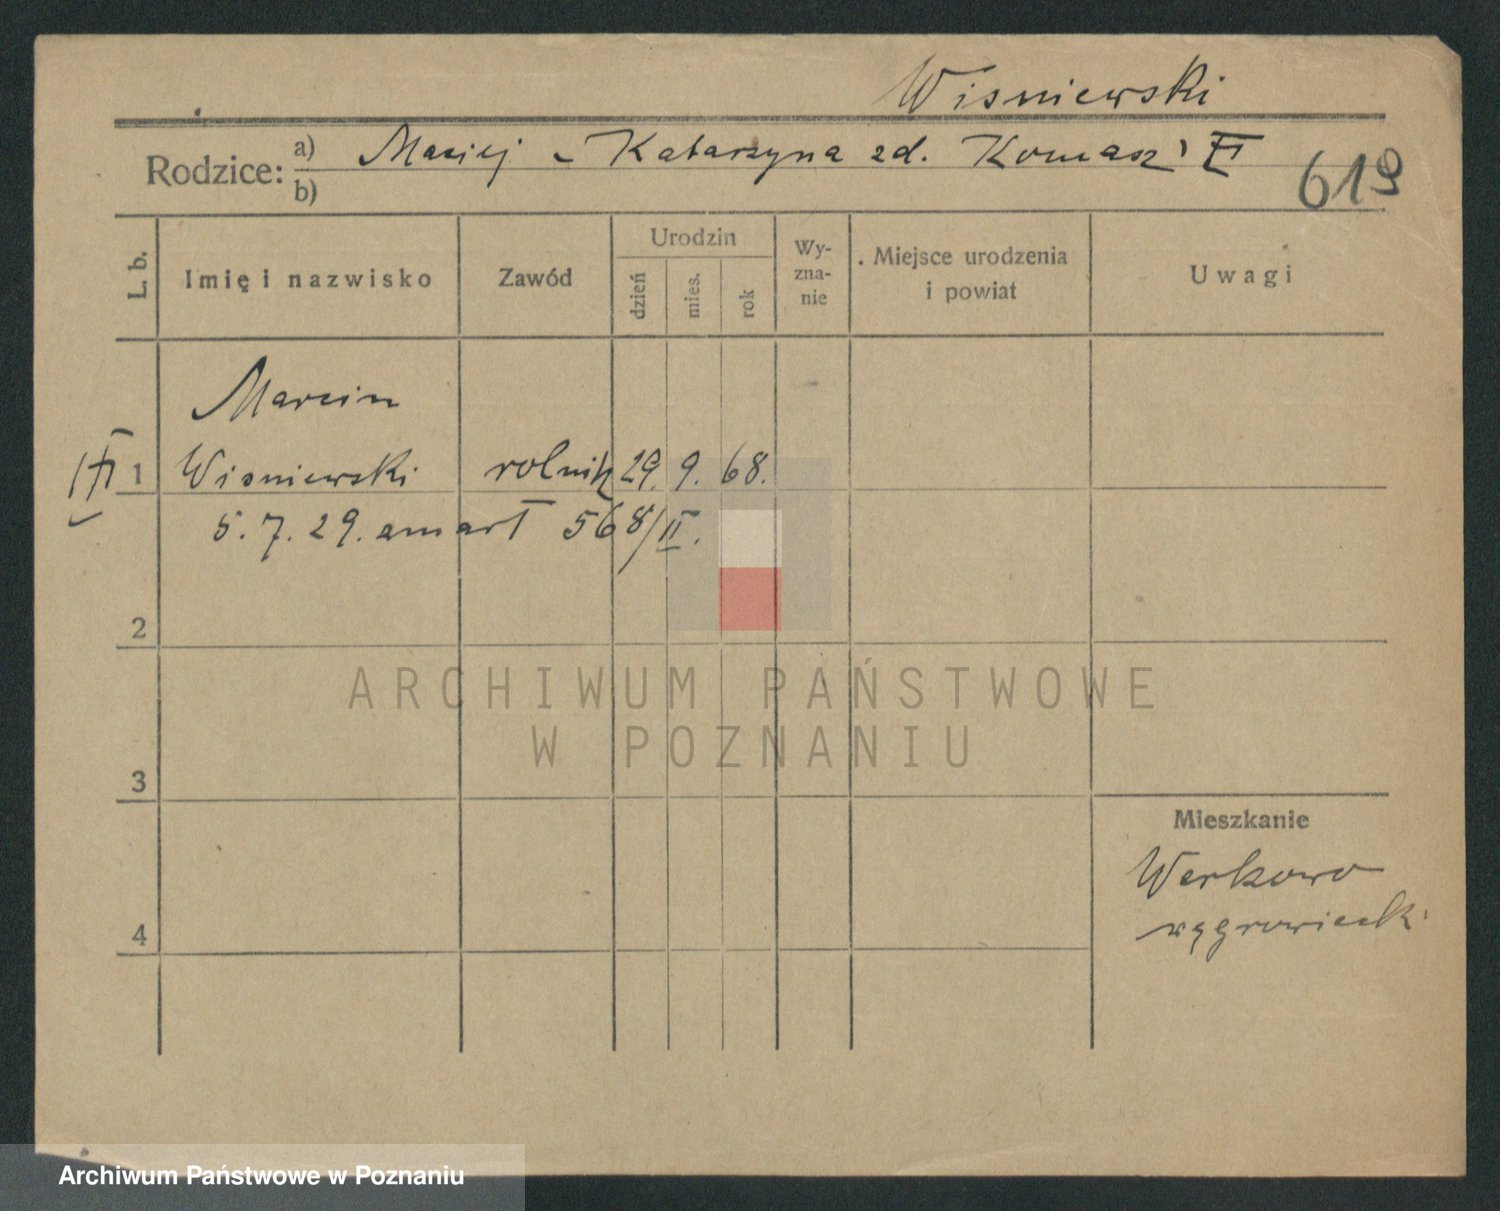 Wisniewski
Rodzice: a) Maciej - Katarzyna zd.
b)
619
L. b.
Imię i nazwisko
Zawód
Urodzin
dzień
mies.
rok
Wy-
zna-
nie
Miejsce urodzenia
i powiat
Uwagi
Marcin
1 Wisniewski rolnik 29. 9. 68.
5. 7. 29. 568/II.
2
3
4
Mieszkanie
Werkowo
ARCHIWUM PAŃSTWOWE
W POZNANIU
Archiwum Państwowe w Poznaniu